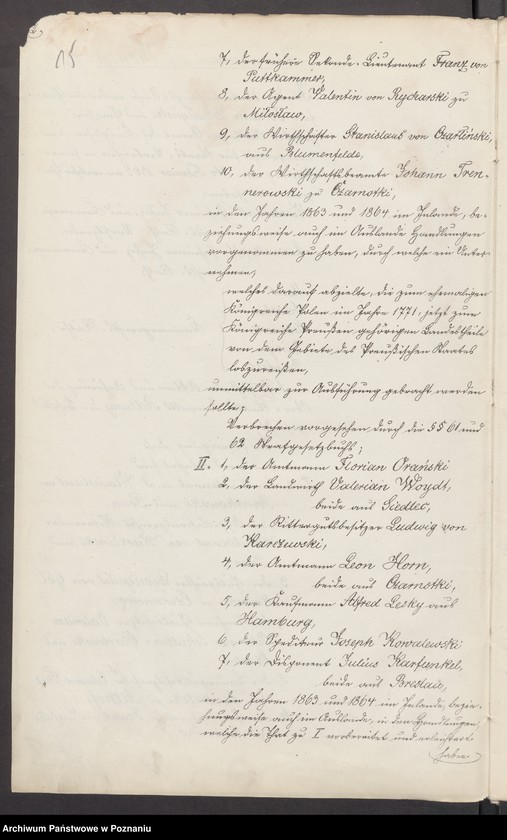 15
7, der frühere Sekonde-Lieutenant Franz von
Puttkammer,
8, der Agent Valentin von Rycharski zu
Miloslaw,
9, der Wirthschafter Stanislaus von Czarlinski,
aus Blumenfelde,
10, der Wirthschaftsbeamte Johann Tren-
nerowski zu Czarnotki,
in den Jahren 1863 und 1864 im Inlande, be-
ziehungsweise auch im Auslande Handlungen
vorgenommen zu haben, durch welche ein Unter-
nehmen,
welches darauf abzielte, die zum ehemaligen
Königreiche Polen im Jahre 1771, jetzt zum
Königreiche Preußen gehörigen Landestheile
von dem Gebiete des Preußischen Staates
loszureißen,
unmittelbar zur Ausführung gebracht werden
sollte;
Verbrechen vorgesehen durch die §§ 61 und
62 Strafgesetzbuchs;
II. 1, der Amtmann Florian Orański
2, der Landwirth Valerian Woydt,
beide aus Siedlec,
3, der Rittergutsbesitzer Ludwig von
Karczewski,
4, der Amtmann Leon Horn,
beide aus Czarnotki,
5, der Kaufmann Alfred Lesky aus
Hamburg,
6, der Spediteur Joseph Kowalewski
7, der Disponent Julius Karfunkel,
beide aus Breslau,
in den Jahren 1863 und 1864 im Inlande, bezie-
hungsweise auch im Auslande, in den Handlungen,
welche die That zu I vorbereitet und erleichtert
haben
Archiwum Państwowe w Poznaniu